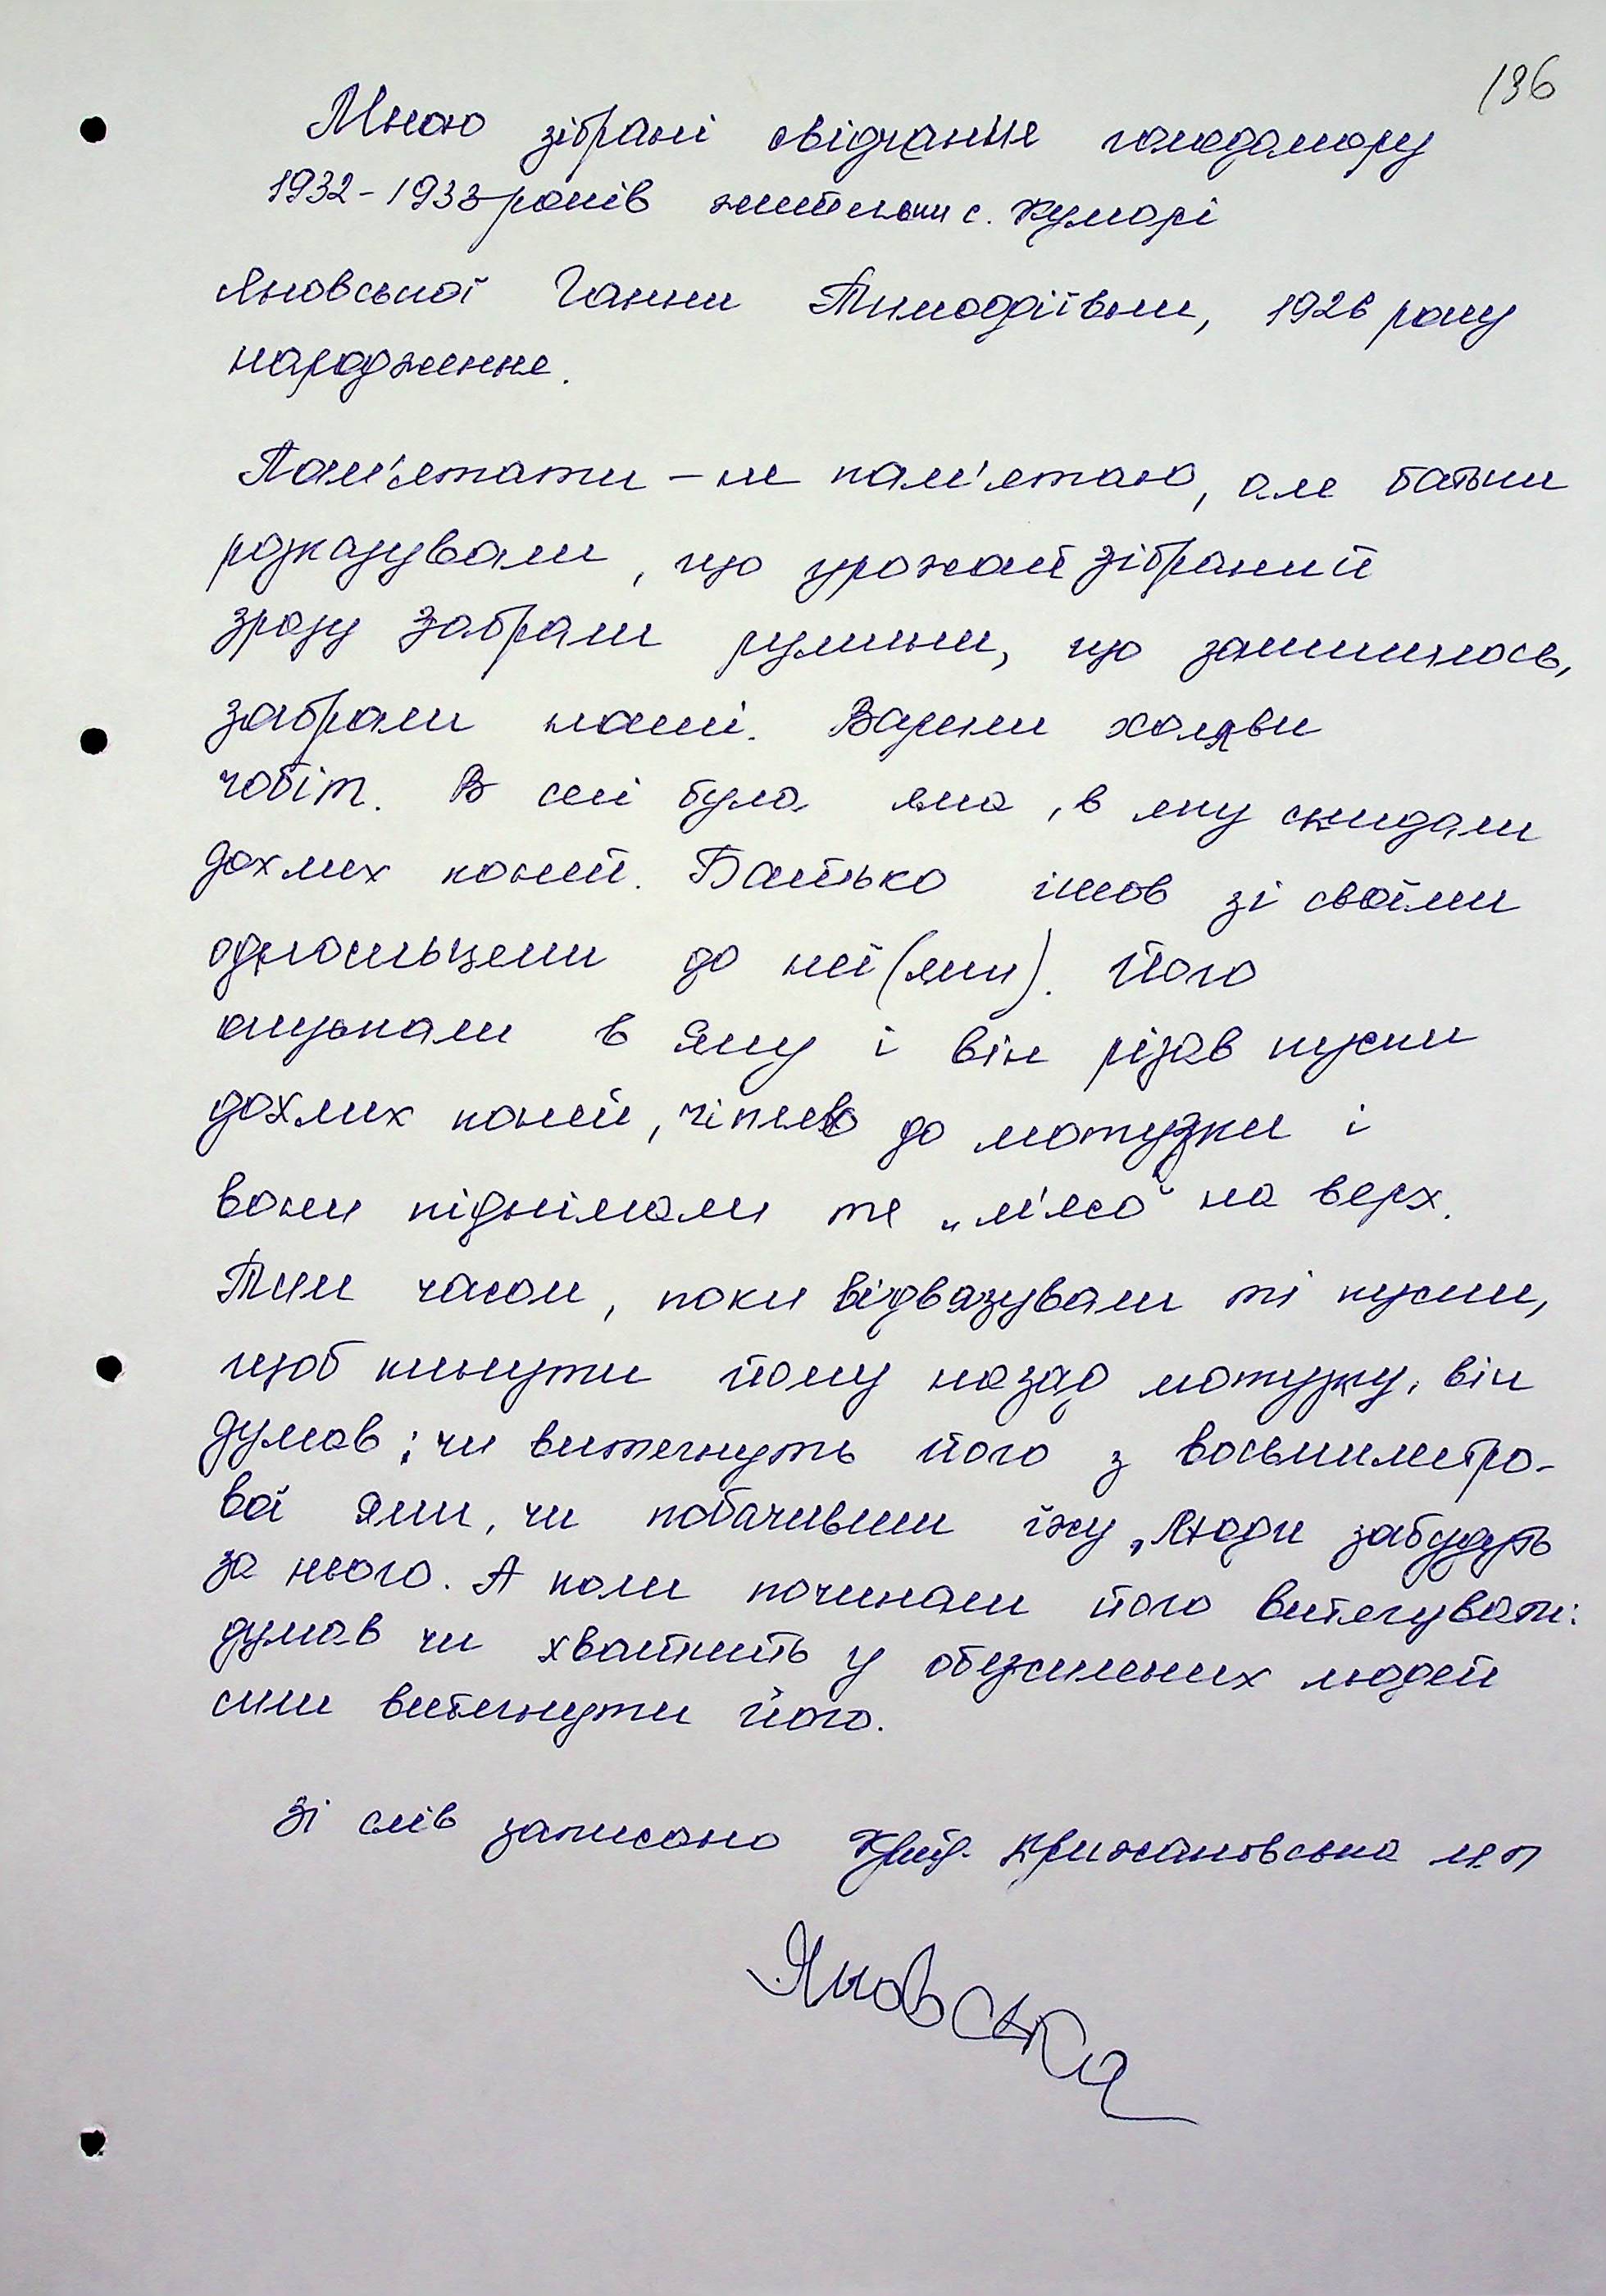 136
Мною зібрані свідчання голодомору
1932-1933 років жительки с. Кумарі
Яновської Ганни Тимофіївни, 1926 року
народження.
Пам'ятати - не пам'ятаю, але батьки
розказували, що урожай зібраний
зразу забрали румини, що залишилось,
забрали наші. Варили халяви
чобіт. В селі була яма, в яку скидали
дохлих коней. Батько ішов зі своїми
односельцями до неї (ями). Його
опускали в яму і він різав куски
дохлих коней, чіпляв до мотузки і
вони піднімали те „м'ясо" на верх.
Тим часом, поки відвязували ті куски,
щоб кинути йому назад мотузку, він
думав: чи витягнуть його з восьмиметро-
вої ями, чи побачивши їжу, люди забудуть
за нього. А коли починали його витягувати:
думав чи хватить у обезсилених людей
сили витягнути його.
Зі слів записано Крижановська
Яновська